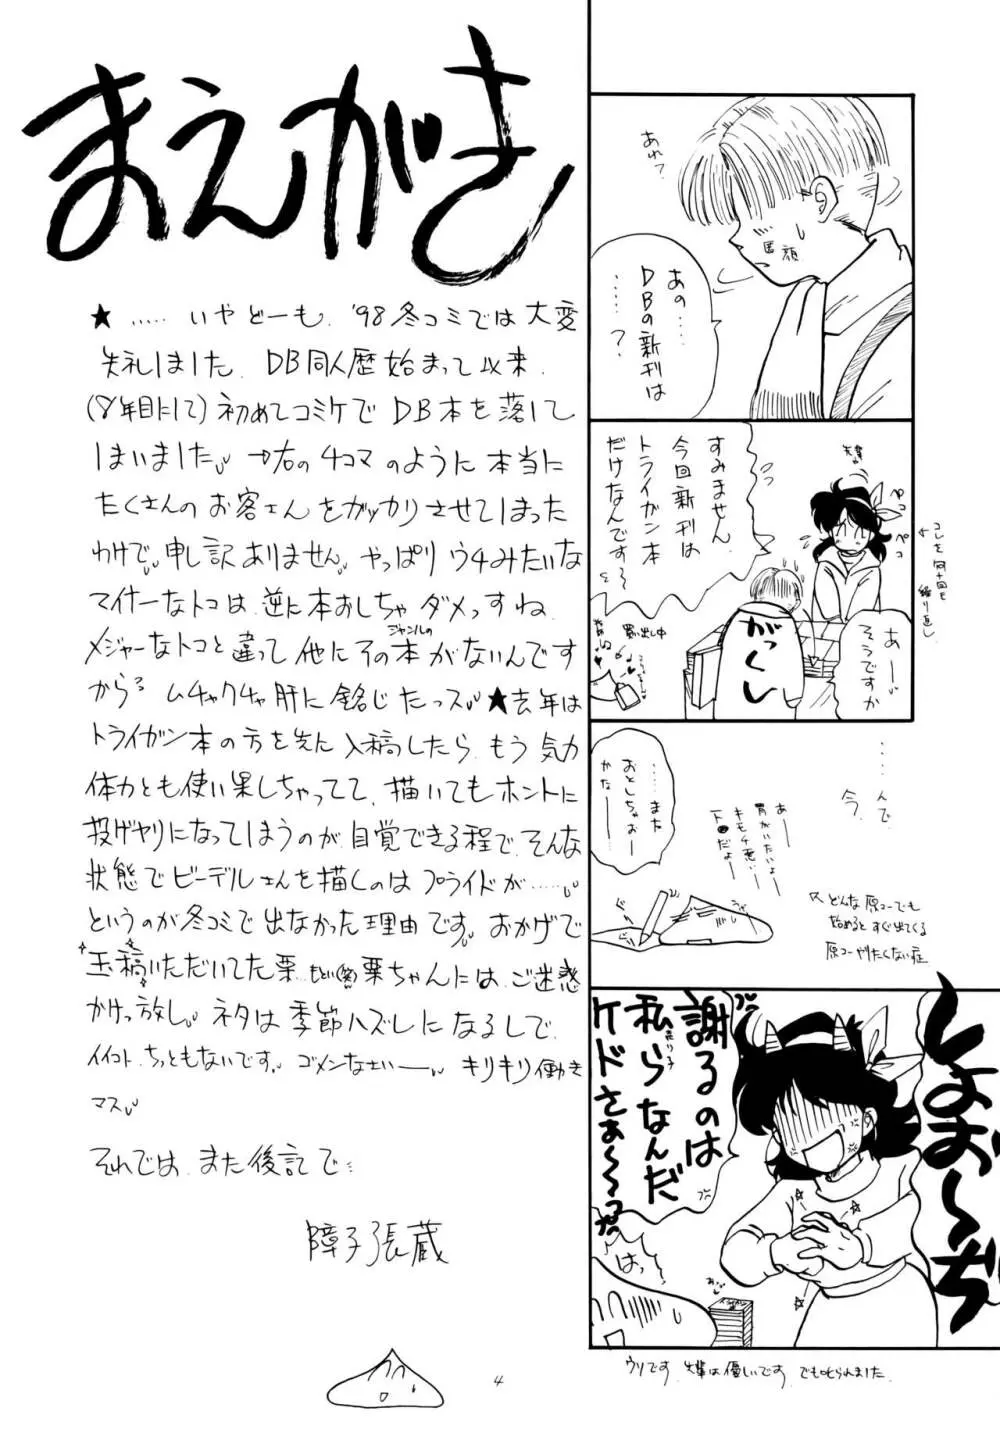 まえがき
★……いやどーも、'98冬コミでは大変
失礼しました。DB同人歴始まって以来、
(8年目にして)初めてコミケでDB本を落して
しまいました。→右の4コマのように本当に
たくさんのお客さんをガッカリさせてしまった
わけで、申し訳ありません。やっぱりウチみたいな
マイナーなトコは、逆に本おしちゃダメっすね
メジャーなトコと違って他にそのジャンルの本がないんです
から。ムチャクチャ肝に銘じたっス。★去年は
トライガン本の方を先に入稿したら、もう気力
体力とも使い果しちゃってて、描いてもホントに
投げヤリになってしまうのが自覚できる程で、そんな
状態でビーデルさんを描くのはプライドが……
というのが冬コミで出なかった理由です。おかげで
玉稿いただいてた栗もとい(笑)粟ちゃんには、ご迷惑
かけっ放し。ネタは季節ハズレになるしで、
イイコトちっともないです。ゴメンなさいー キリキリ働き
マス。
それでは、また後記で…
障子張蔵
4
あれ?
馬顔
あの……
DBの新刊は
……?
すみません、
今回新刊は
トライガン本
だけなんです〜
先輩
ペコ
ペコ
コレを何十回も
繰り返し
あー
そうですか
がっくし
買い出し中
……んで
今、
……また
おとしちゃおー
かなー
あー
胃がいたいよー
キモチ悪いー
下●だよー
どんな原コーでも
始めるとすぐ出てくる
原コーやりたくない症
しょお〜ぢ
謝るのは
私ら売り子なんだ
ケドさぁ〜〜っ?
はっ
ウリです。先輩は優しいです。でも叱られました。